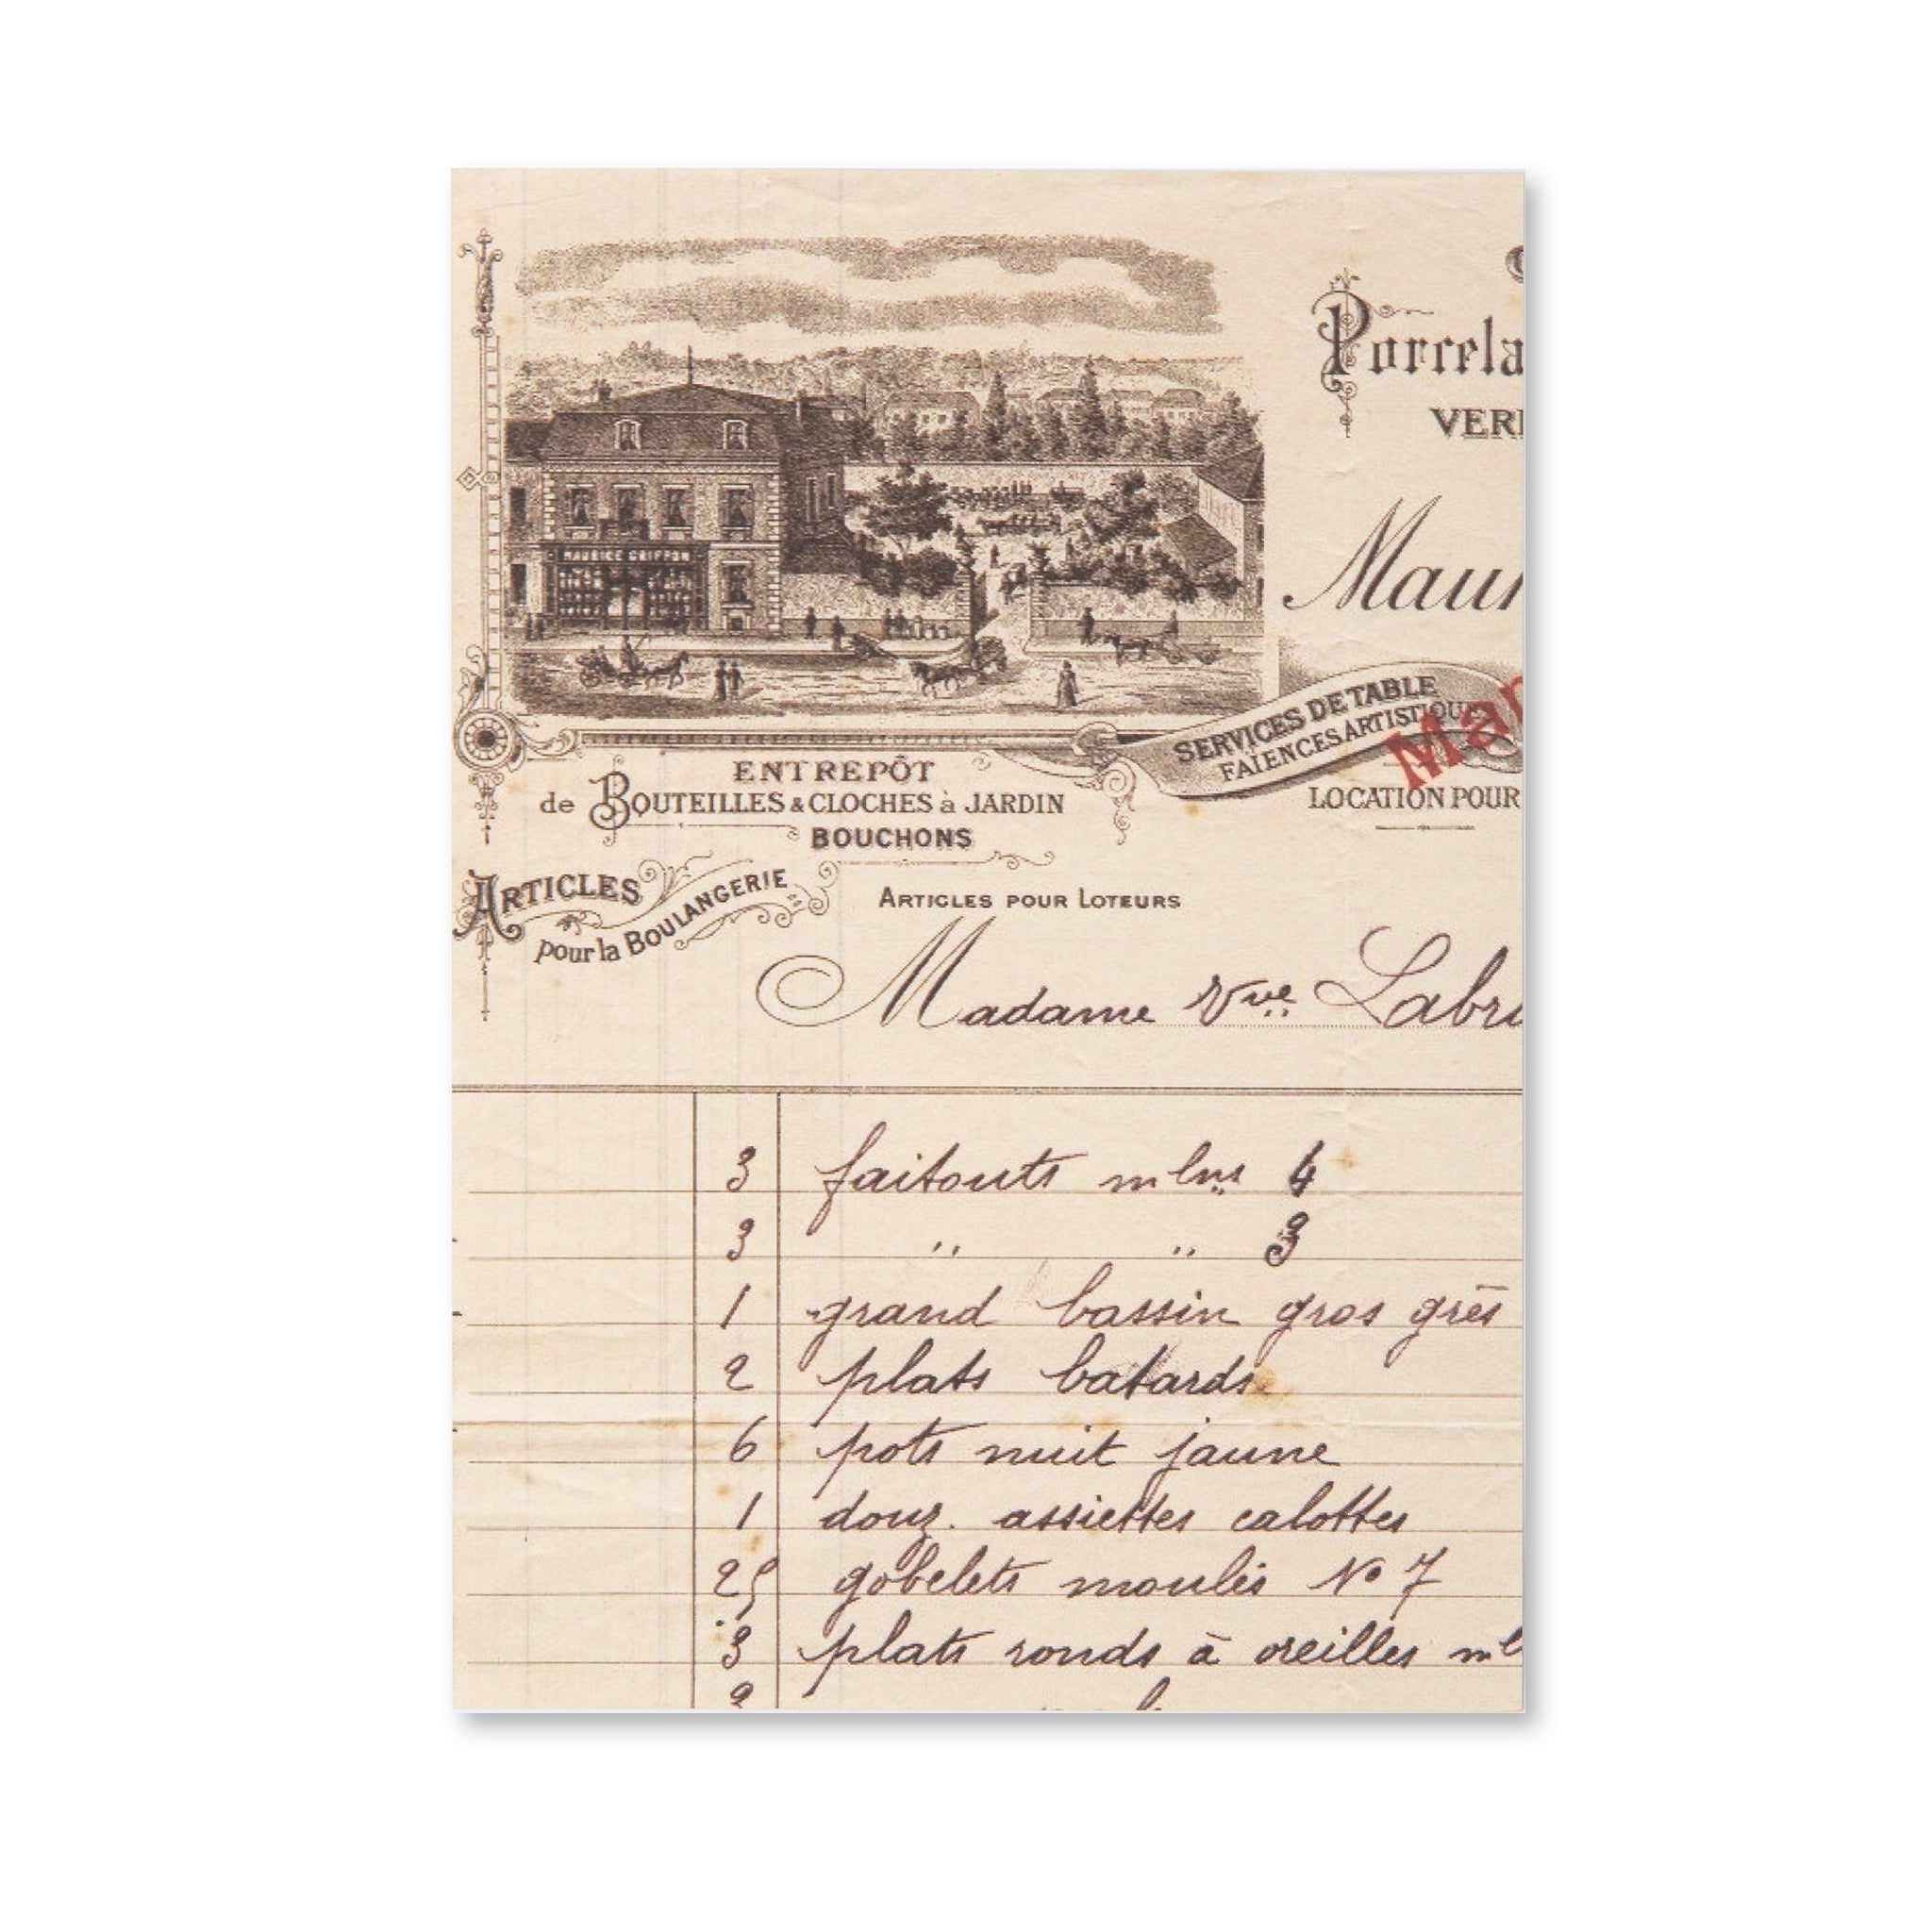 Porcela
VERI
MAURICE GRIFFON
Maur
SERVICES DE TABLE
FAIENCES ARTISTIQUES
Mar
LOCATION POUR
ENTREPÔT
de BOUTEILLES & CLOCHES à JARDIN
BOUCHONS
ARTICLES
pour la BOULANGERIE
ARTICLES POUR LOTEURS
Madame Vve Labru
3 faitouts 4
3 " " 3
1 grand bassin gros grès
2 plats batards
6 pots nuit jaune
1 douz. assiettes calottes
25 gobelets moulés No 7
3 plats ronds à oreilles